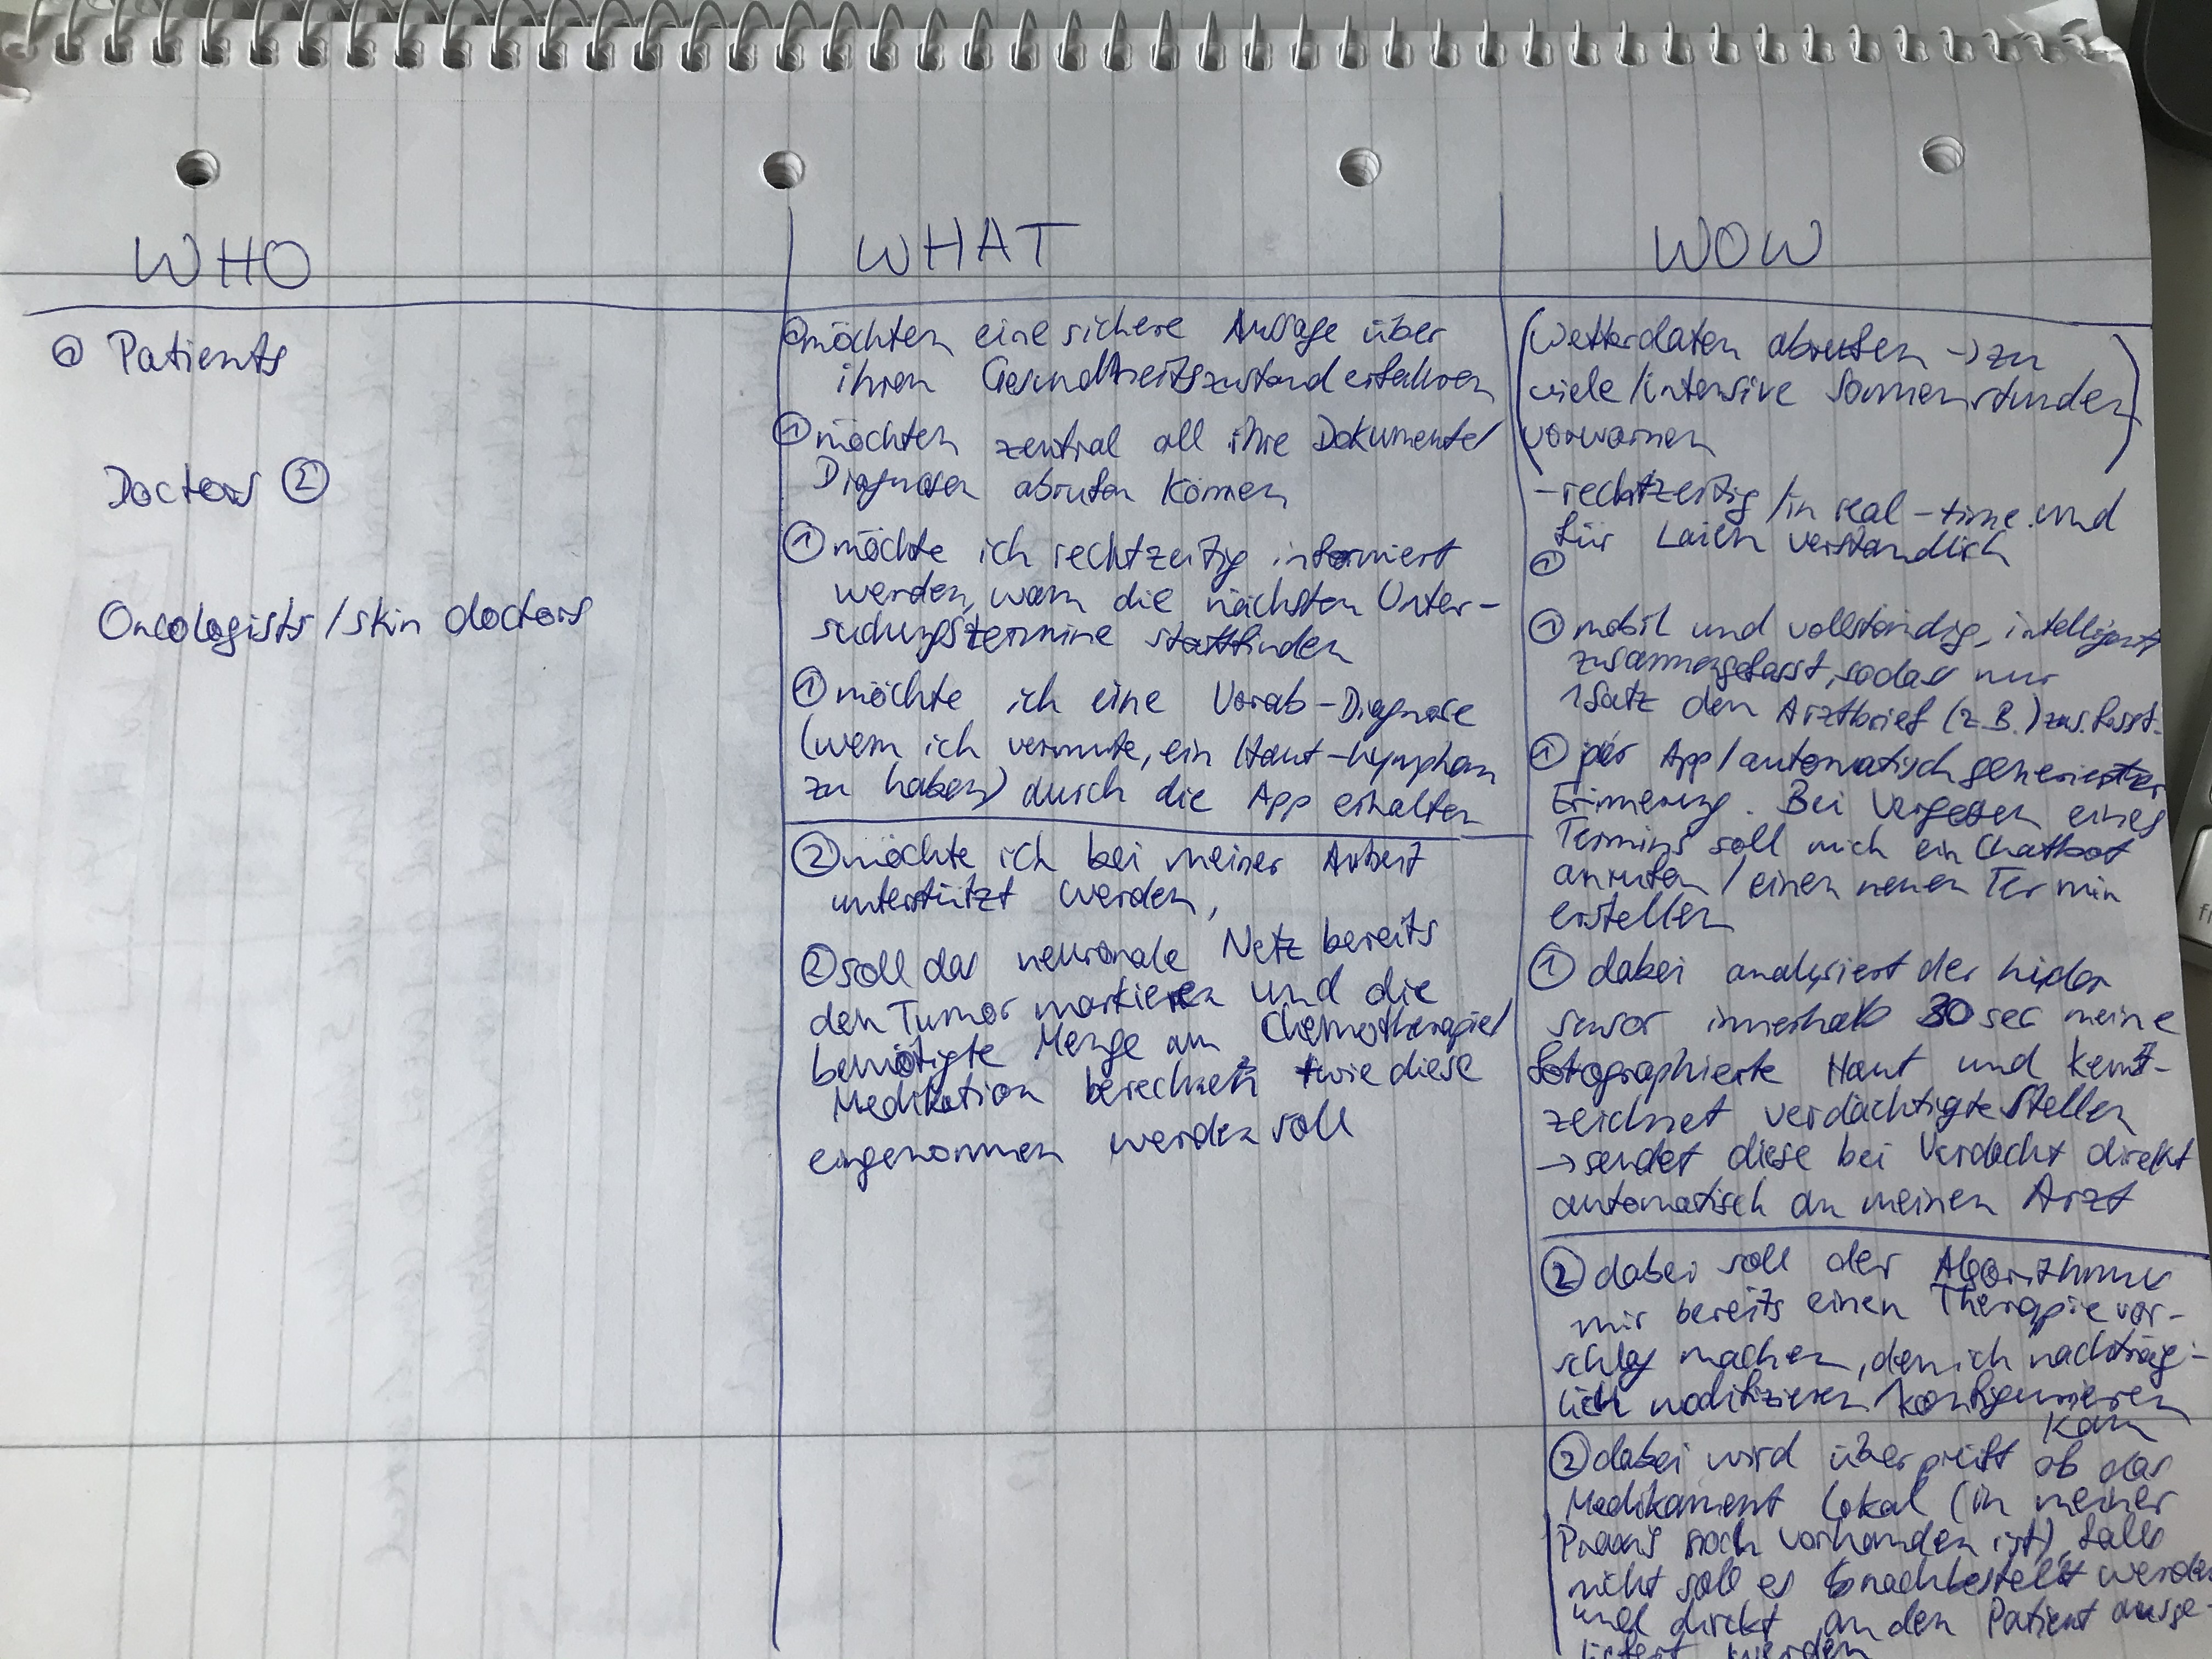 WHO
① Patients
Doctors ②
Oncologists / skin doctors
WHAT
① möchten eine sichere Anzeige über
ihren Gesundheitszustand erhalten
① möchten zentral all ihre Dokumente/
Diagnosen abrufen können
① möchte ich rechtzeitig informiert
werden, wann die nächsten Unter-
suchungstermine stattfinden
① möchte ich eine Vorab-Diagnose
(wenn ich vermute, ein Haut-Lymphom
zu haben) durch die App erhalten
② möchte ich bei meiner Arbeit
unterstützt werden,
② soll das neuronale Netz bereits
den Tumor markieren und die
benötigte Menge an Chemotherapie/
Medikation berechnen + wie diese
eingenommen werden soll
WOW
(Wetterdaten abrufen → zu
viele/intensive Sonnenstunden)
vorwarnen
- rechtzeitig / in real-time und
① für Laien verständlich
① mobil und vollständig, intelligent
zusammengefasst, sodass nur
1 Satz den Arztbrief (z.B.)
① per App/automatisch generierter
Erinnerung. Bei Vergessen eines
Termins soll mich ein Chatbot
anrufen / einen neuen Termin
erstellen
① dabei analysiert der
Sensor innerhalb 30 sec meine
fotographierte Haut und kenn-
zeichnet verdächtigte Stellen
→ sendet diese bei Verdacht direkt
automatisch an meinen Arzt
② dabei soll der Algorithmus
mir bereits einen Therapievor-
schlag machen, den ich nachträg-
lich modifizieren/konfigurieren
kann
② dabei wird überprüft ob das
Medikament lokal (in meiner
Praxis vorhanden ist) falls
nicht soll es nachbestellt werden
und direkt an den Patient ausge-
liefert werden